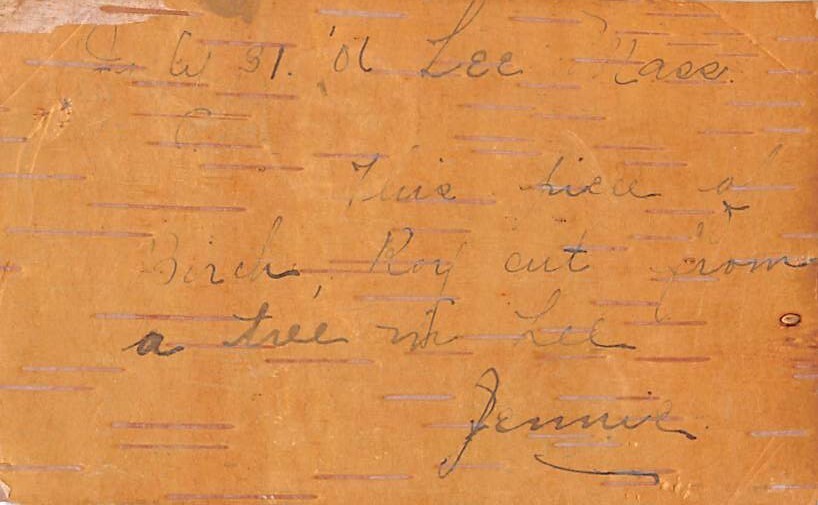 31. '01 Lee Mass.
This piece of
Birch, Roy cut from
a tree in Lee
Jennie